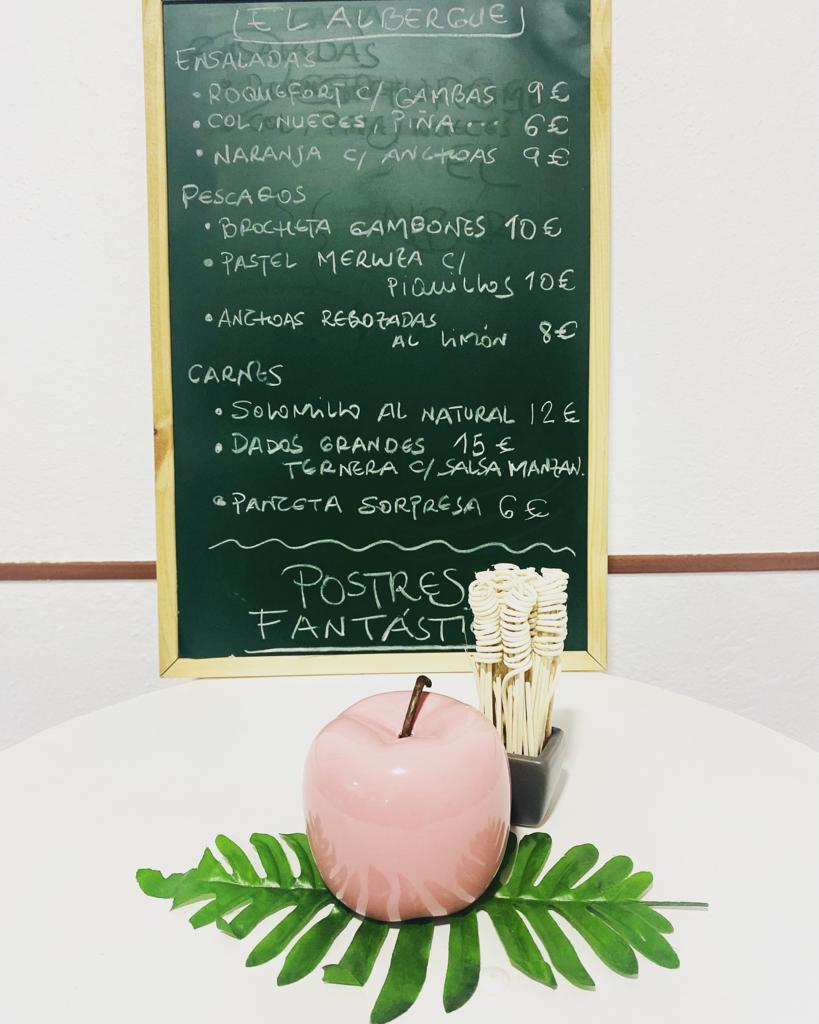 EL ALBERGUE
ENSALADAS
• ROQUEFORT C/ GAMBAS 9€
• COL, NUECES, PIÑA... 6€
• NARANJA C/ ANCHOAS 9€
PESCADOS
• BROCHETA GAMBONES 10€
• PASTEL MERLUZA C/
PIQUILLOS 10€
• ANCHOAS REBOZADAS
AL LIMÓN 8€
CARNES
• SOLOMILLO AL NATURAL 12€
• DADOS GRANDES 15€
TERNERA C/ SALSA MANZAN.
• PANCETA SORPRESA 6€
POSTRES
FANTÁSTI